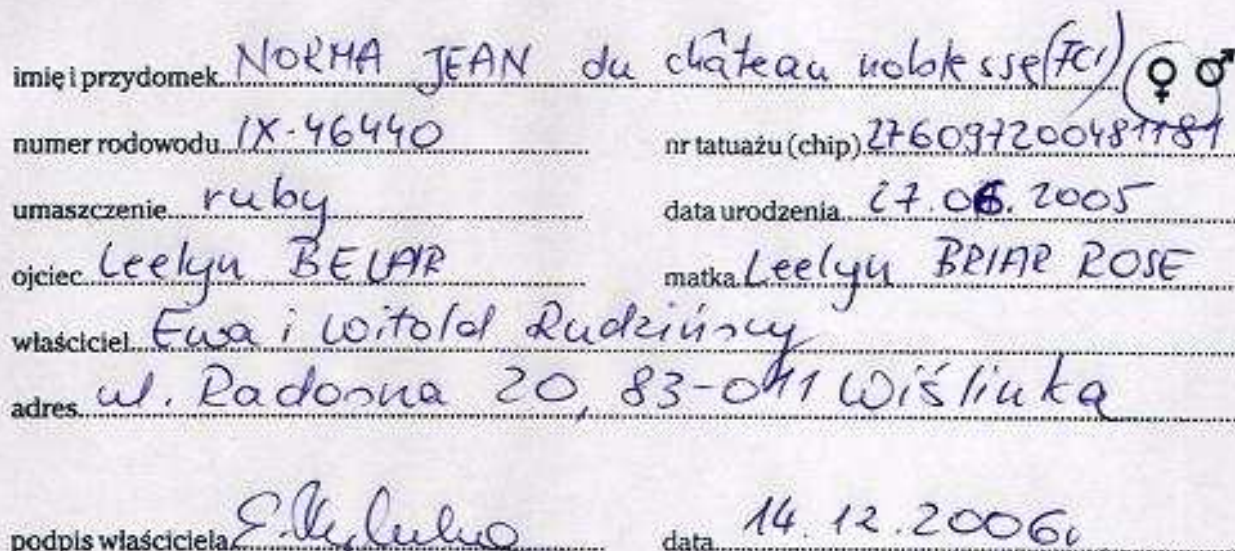 imię i przydomek NORMA JEAN du château noblesse (FCI) ♀ ♂
numer rodowodu IX-46440 nr tatuażu (chip) 276097200481181
umaszczenie ruby data urodzenia 27.06.2005
ojciec Leelyn BELAIR matka Leelyn BRIAR ROSE
właściciel Ewa i Witold Rudzińscy
adres ul. Radosna 20, 83-011 Wiślinka
podpis właściciela data 14.12.2006r